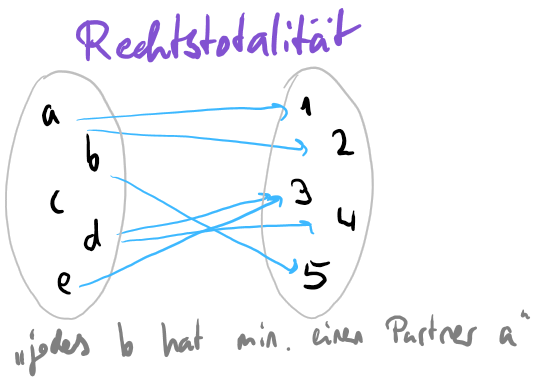 Rechtstotalität
a
1
b
2
c
3
d
4
e
5
„jedes b hat min. einen Partner a“